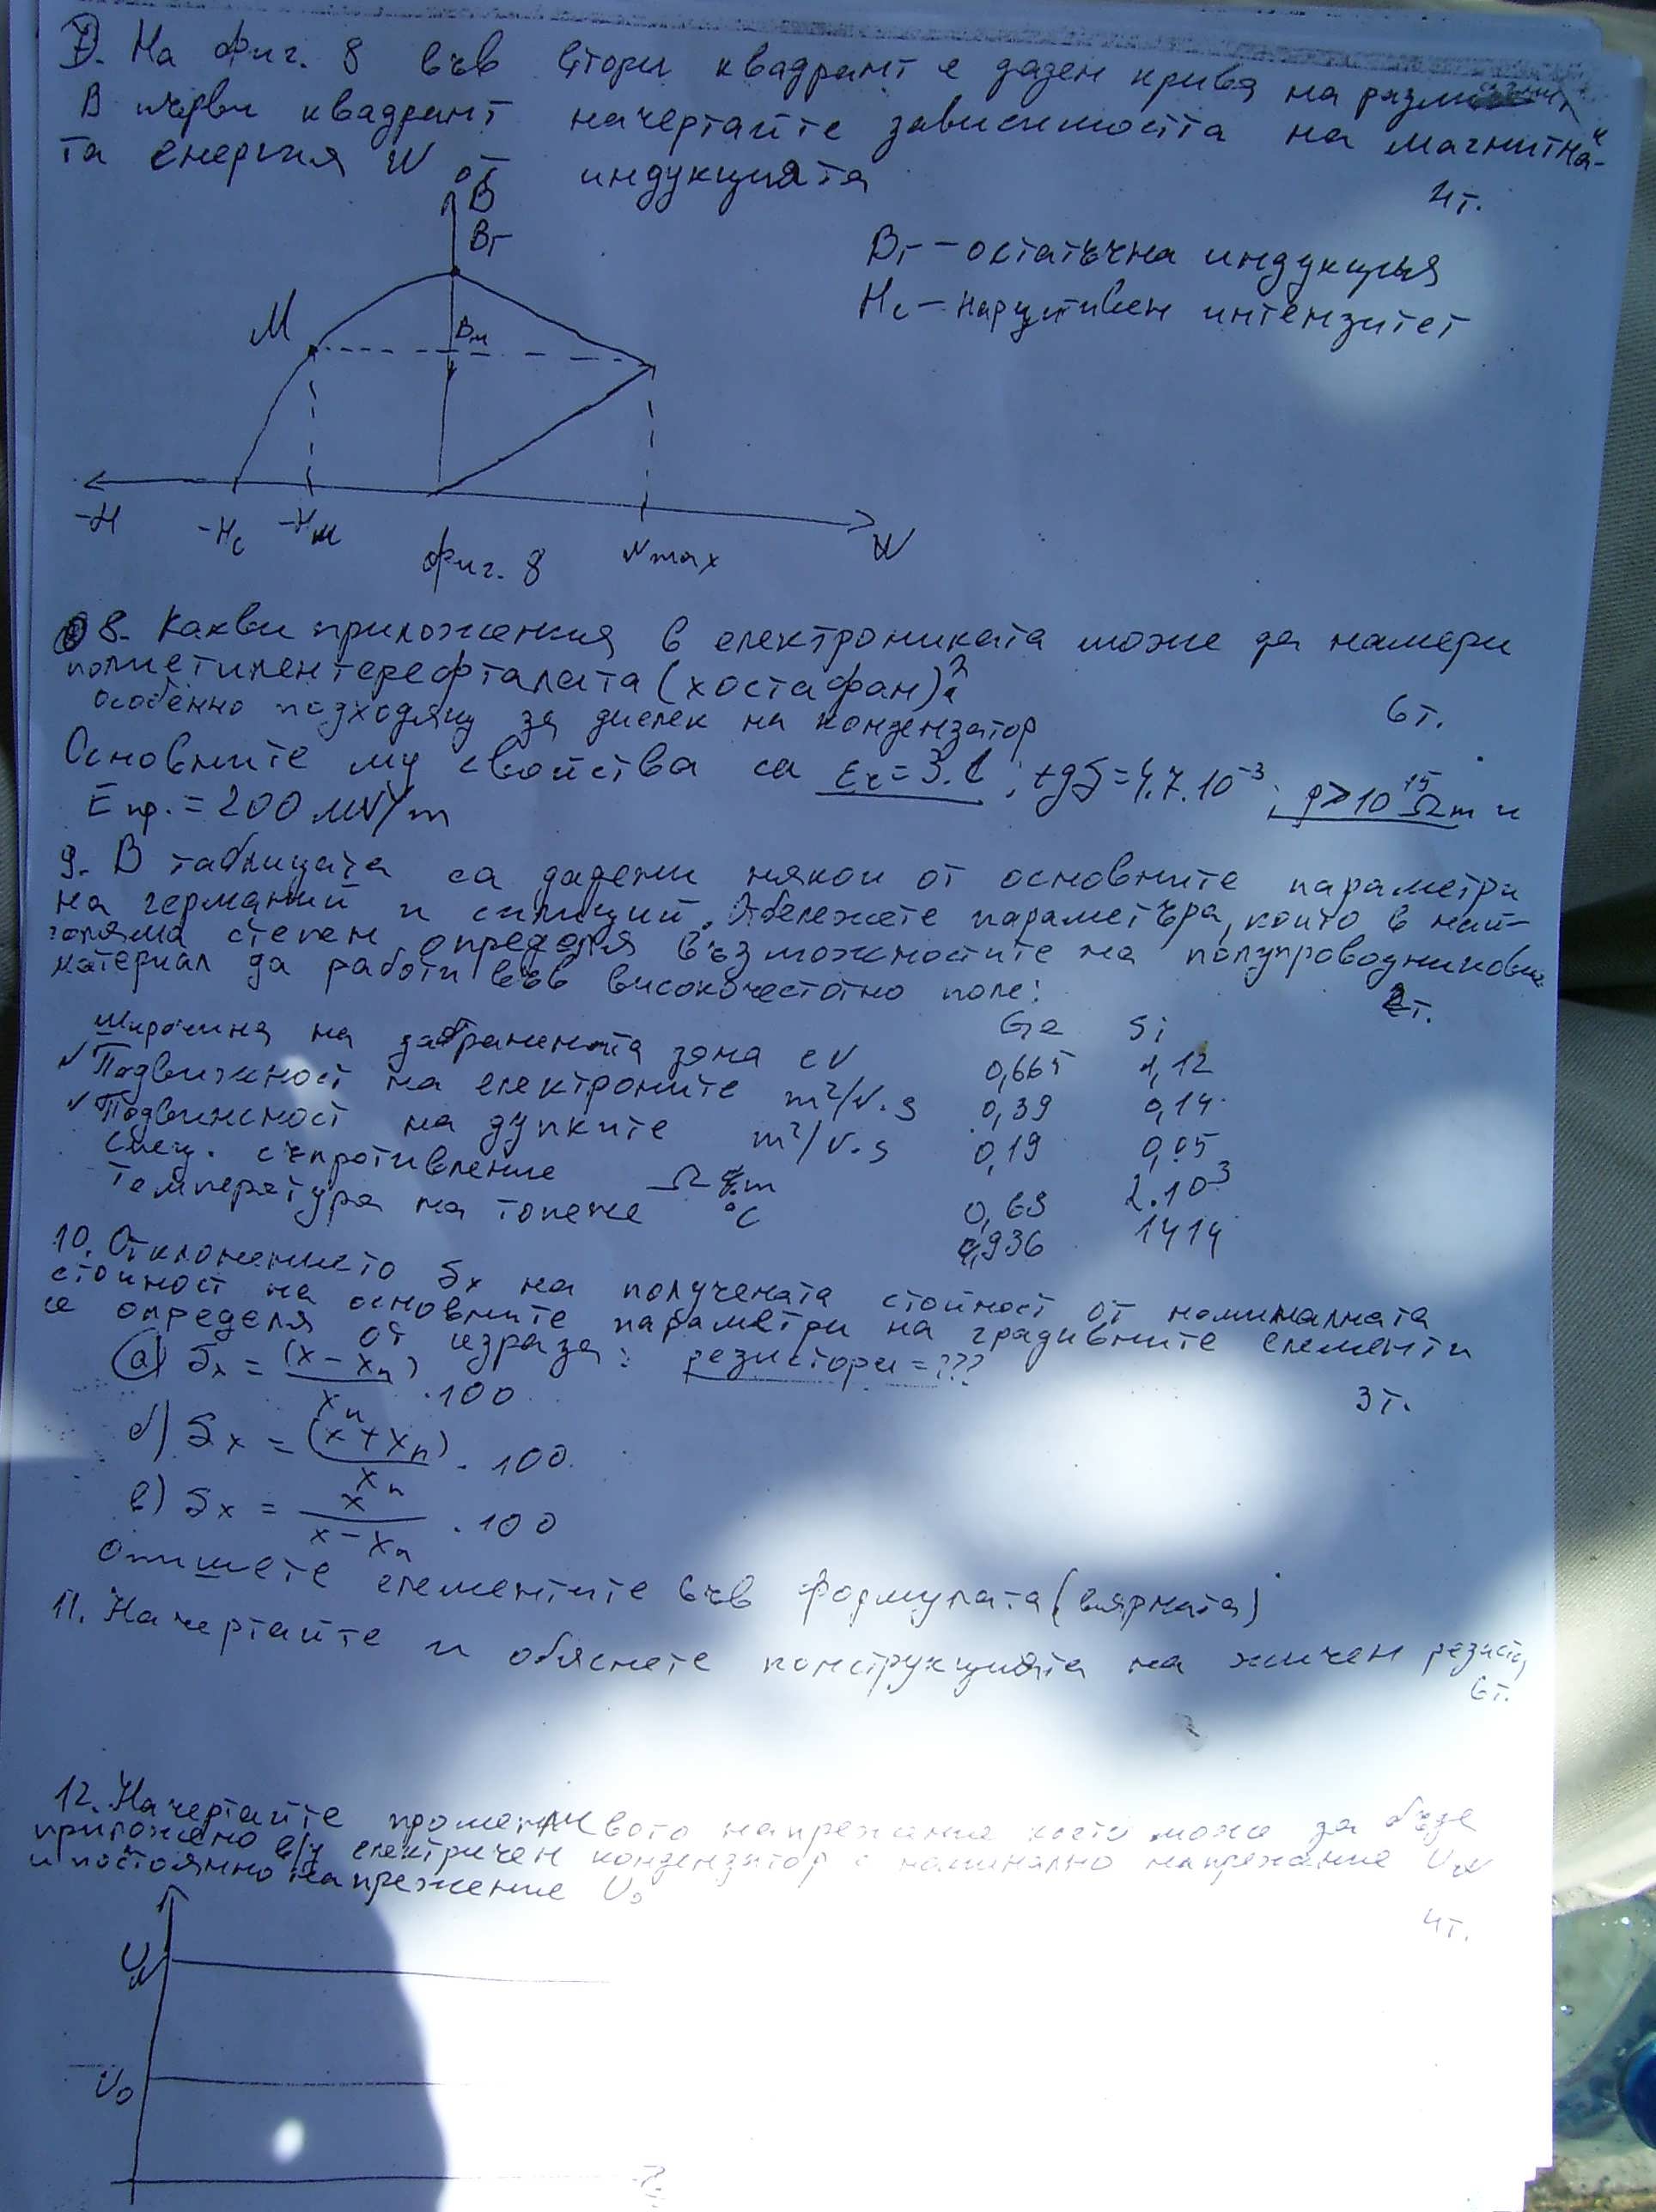 7. На фиг. 8 във втори квадрант е даден крива на
В първи квадрант начертайте зависимостта на магнитна-
та енергия W от индукцията
4т.
B
Br
Br – остатъчна индукция
Hc – интензитет
M
Bм
-H
-Hc
-Hм
Wmax
W
фиг. 8
8. Какви приложения в електрониката може да намери
полиетилентерефталата (хостафан)?
6т.
особенно подходящ за диелек на кондензатор
Основните му свойства са εr = 3.1 ; tgδ = 4,7.10⁻³ ; ρ > 10¹⁵ Ωm и
Eпр. = 200 MV/m
9. В таблицата са дадени някои от основните параметри
на германий и силиций. Отбележете параметъра, които в най-
голяма степен определя възможностите на полупроводникови
материал да работи във високочестотно поле:
2т.
Ge Si
Широчина на забранената зона eV 0,665 1,12
✓ Подвижност на електроните m²/V.s 0,39 0,14
✓ Подвижност на дупките m²/V.s 0,19 0,05
Спец. съпротивление Ω.m 0,68 2.10³
Температура на топене °C 936 1414
10. Отклонението δx на получената стойност от номиналната
стойност на основните параметри на градивните елементи
се определя от израза: резистори = ???
3т.
а) δx = (x – xn) / xn . 100
б) δx = (x + xn) / xn . 100
в) δx = x / x – xn . 100
Опишете елементите във формулата (вярната)
11. Начертайте и обяснете конструкцията на жичен
6т.
12. Начертайте променливото напрежение което може за бъде
приложено в/у електричен кондензатор с номинално напрежение UN
и постоянно напрежение U0
4т.
UN
U0